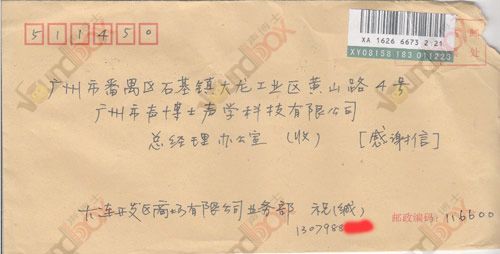 511450
XA 1626 6673 2 21
XY08158 183 011223
广州市番禺区石基镇大龙工业区黄山路4号
广州市声博士声学科技有限公司
总经理办公室 (收) [感谢信]
大连开发区商场有限公司业务部 祝(缄)
邮政编码: 116600
1307988